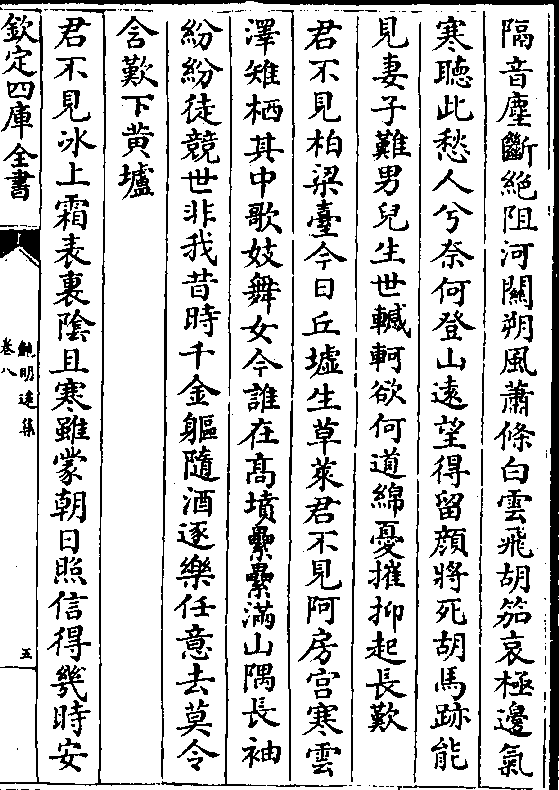 隔音塵斷絶阻河關朔風蕭條白雲飛胡笳哀極邊氣
寒聽此愁人兮奈何登山遠望得留顔將死胡馬跡能
見妻子難男兒生世轗軻欲何道綿憂摧抑起長歎
君不見柏梁臺今日丘墟生草萊君不見阿房宫寒雲
澤雉栖其中歌妓舞女今誰在髙墳纍纍滿山隅長袖
紛紛徒競世非我昔時千金軀隨酒逐樂任意去莫令
含歎下黄壚
君不見冰上霜表裏陰且寒雖蒙朝日照信得幾時安
欽定四庫全書
鮑明遠集
卷八
五